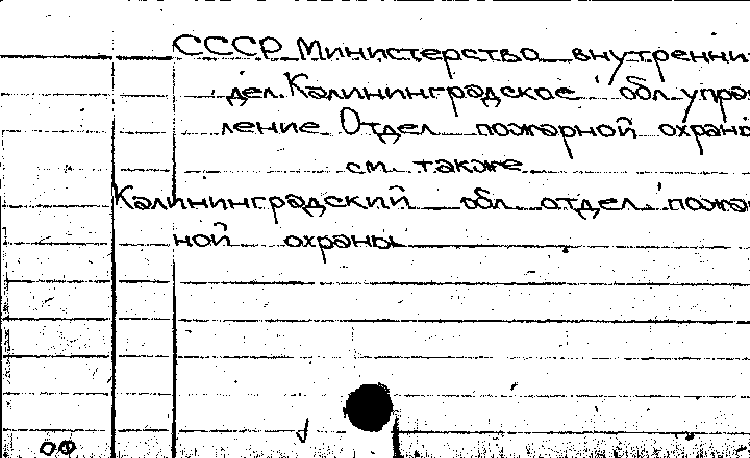 СССР Министерство внутренни
дел. Калининградское обл. упра
ление Отдел пожарной охран
см. также
Калининградский обл. отдел пожа
ной охраны